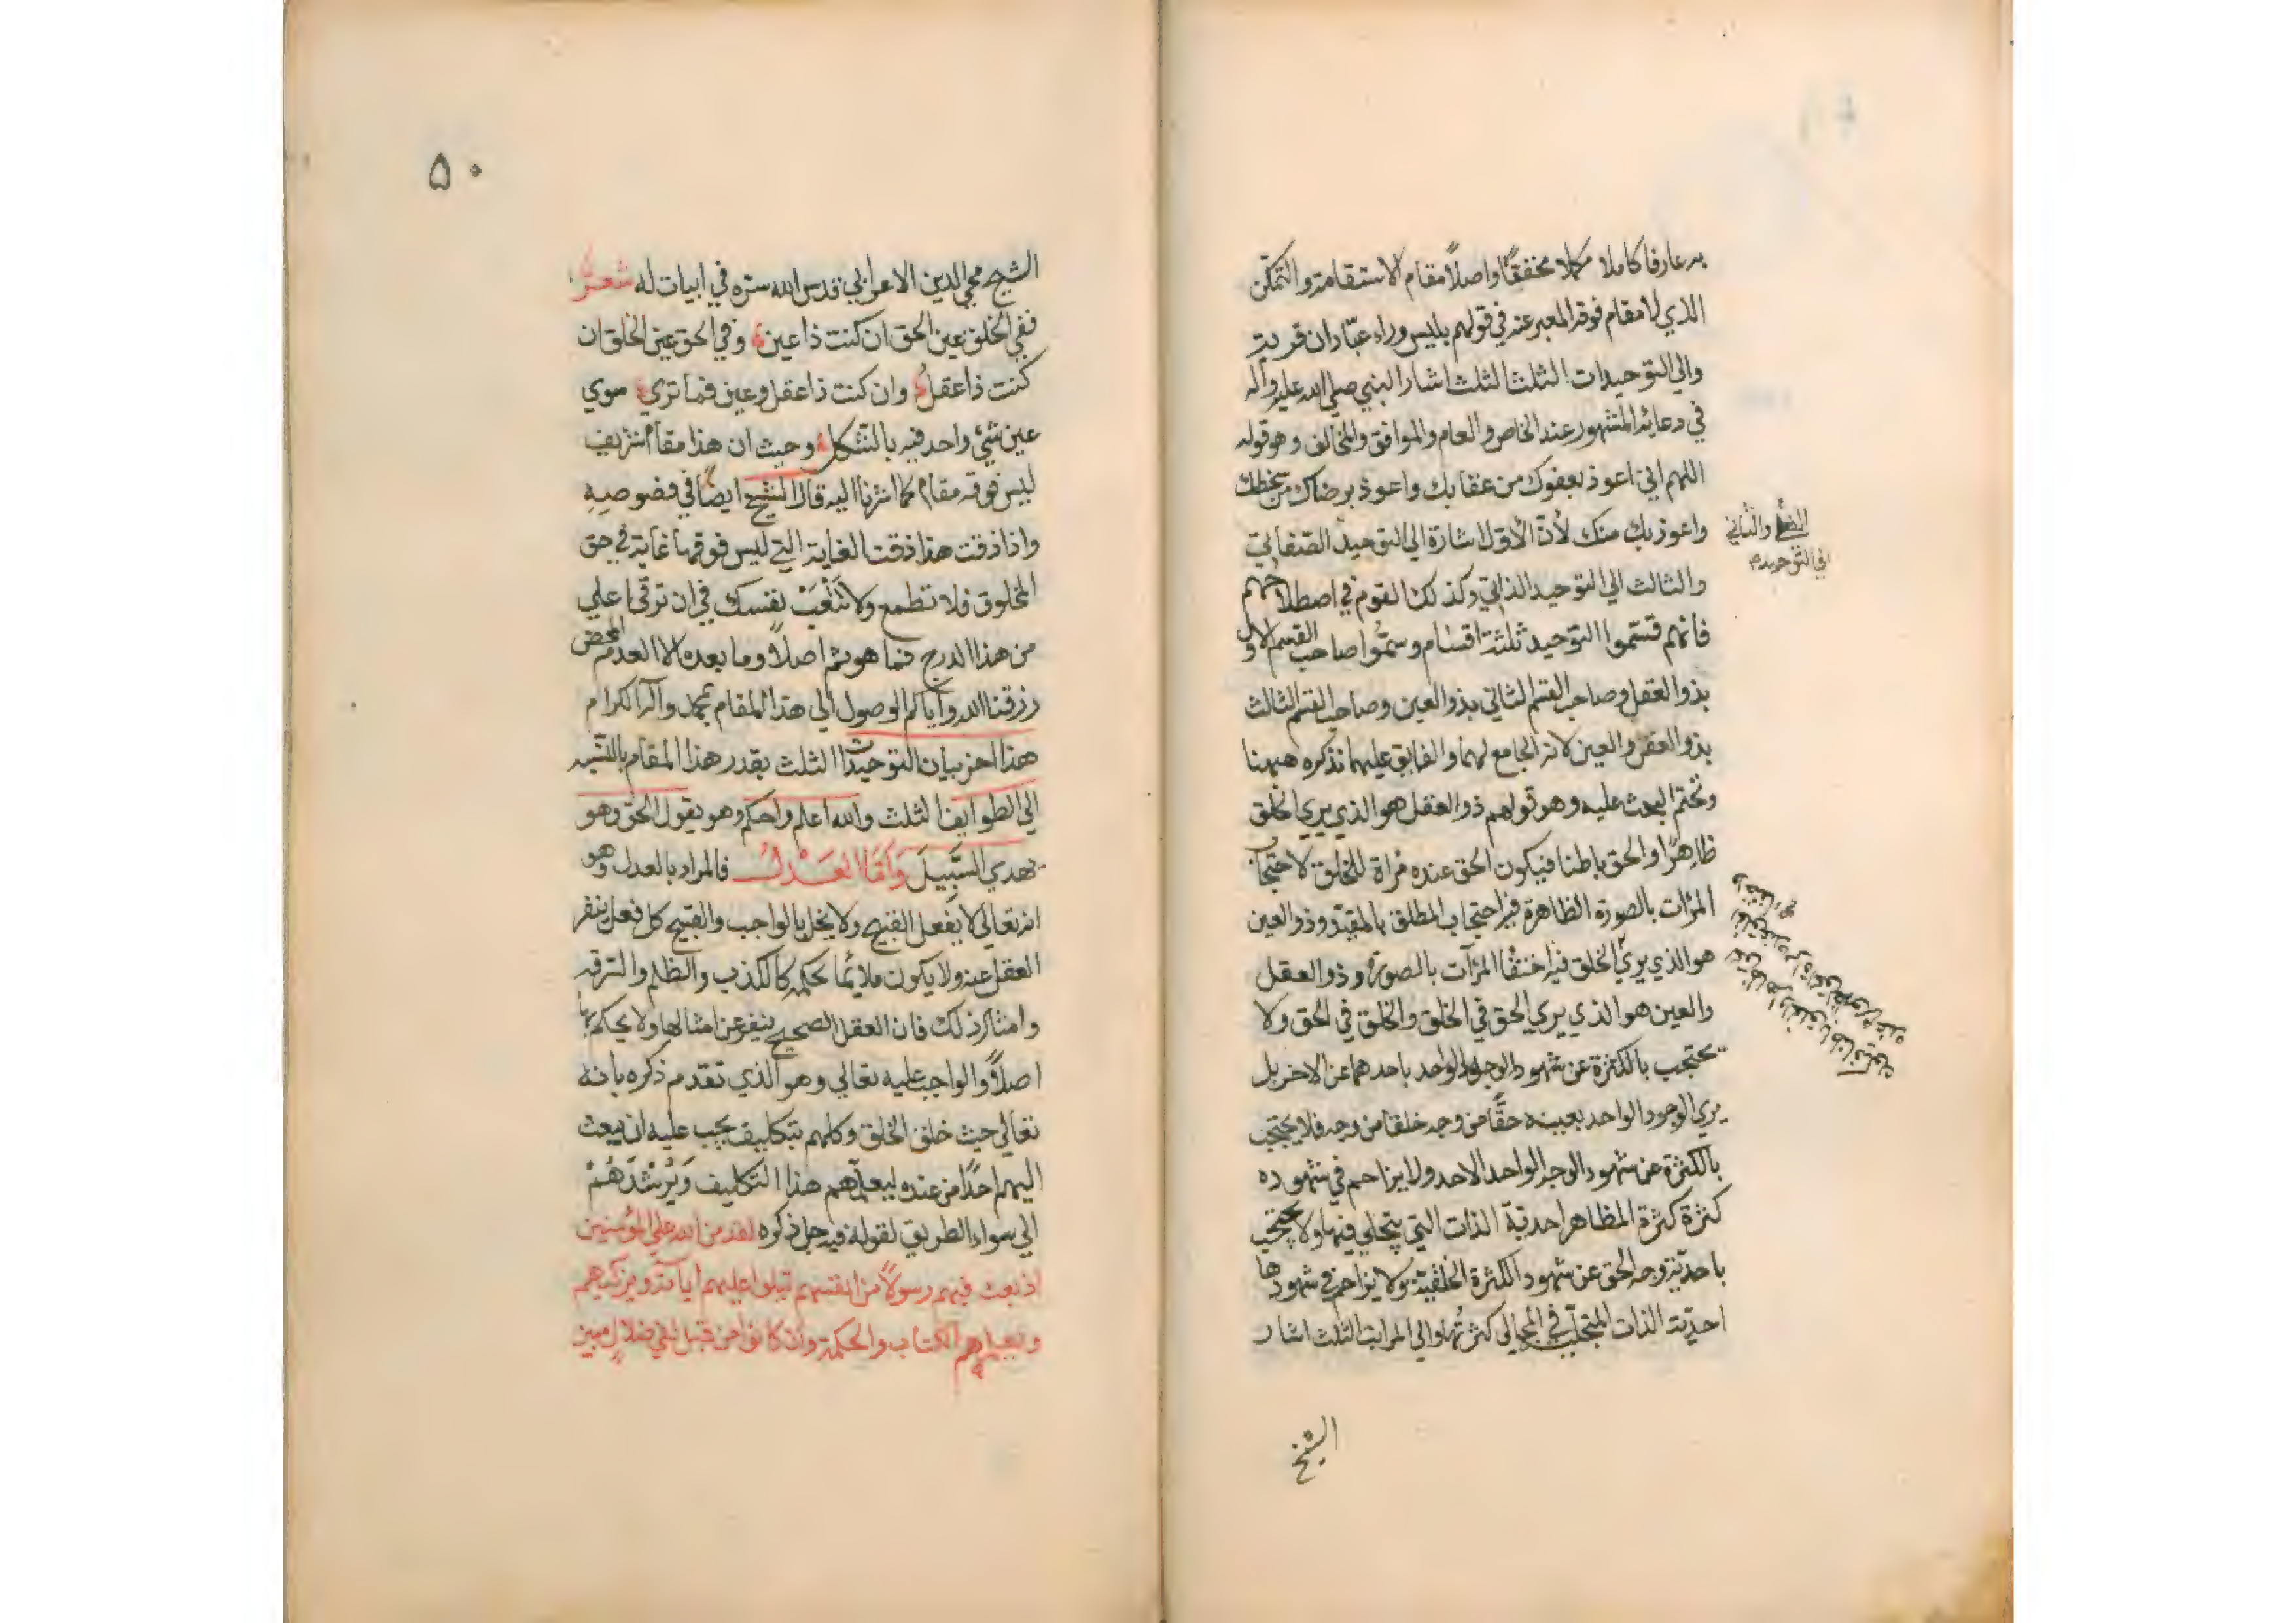 به عارفا كاملا مكملا محققًا واصلاً مقام الاستقامة والتمكن
الذي لا مقام فوقه المعبر عنه في قولهم بليس وراء عبّادان قرية
والي التوحيدات الثلث الثلث اشار النبي صلي الله عليه وآله
في دعائه المشهور عند الخاص والعام والموافق والمخالف وهو قوله
اللهم اني اعوذ بعفوك من عقابك واعوذ برضاك من سخطك
واعوذ بك منك لأن الأول اشارة الي التوحيد الصفاتي
والثاني
الي التوحيد
والثالث الي التوحيد الذاتي وكذلك القوم في اصطلاحهم
فانهم قسّموا التوحيد ثلثة اقسام وسمّوا صاحب القسم الاول
بذو العقل وصاحب القسم الثاني بذو العين وصاحب القسم الثالث
بذو العقل والعين لانه الجامع لهما والفايق عليهما نذكره ههنا
ونختم البحث عليه وهو قولهم ذو العقل هو الذي يري الخلق
ظاهرًا والحق باطنا فيكون الحق عنده مرآة للخلق لاحتجاب
المرآت بالصورة الظاهرة فيه احتجاب المطلق بالمقيد وذو العين
هو الذي يري الخلق فيه اختفا المرآت بالصورة وذو العقل
والعين هو الذي يري الحق في الخلق والخلق في الحق ولا
يحتجب بالكثرة عن شهود الوجه الواحد باحدهما عن الاخر بل
يري الوجود الواحد بعينه حقًّا من وجه خلقا من وجه فلا يحتجب
بالكثرة عن شهود الوجه الواحد الاحد ولا يزاحم في شهوده
كثرة كثرة المظاهر احدية الذات التي يتجلي فيها ولا يحتجب
باحديّة وجه الحق عن شهود الكثرة الخلقية ولا يزاحم في شهودها
احديّة الذات المتجلية في المجالي كثرتُها والي المراتب الثلث اشار
الشيخ
٥٠
الشيخ محي الدين الاعرابي قدس الله سره في ابيات له شعرٌ
ففي الخلق عين الحق ان كنت ذا عين وفي الحق عين الخلق ان
كنت ذا عقل وان كنت ذا عقل وعين فما تري سوي
عين شيء واحد فيه بالشكل وحيث ان هذا مقام شريف
ليس فوقه مقام كما اشرنا اليه قال الشيخ ايضًا في فصوصه
واذا ذقت هذا ذقت الغاية التي ليس فوقها غاية في حق
المخلوق فلا تطمع ولا تتعب نفسك في ان ترقي اعلي
من هذا الدرج فما هو ثم اصلاً وما بعده الا العدم المحض
رزقنا الله واياكم الوصول الي هذا المقام بمحمد وآله الكرام
هذا اخر بيان التوحيدات الثلث بقدر هذا المقام بالنسبة
الي الطوايف الثلث والله اعلم واحكم وهو يقول الحق وهو
يهدي السَّبيلَ وَأمَّا العَدْلُ فالمراد بالعدل وهو
انه تعالي لا يفعل القبيح ولا يخل بالواجب والقبيح كل فعل ينفر
العقل عنه ولا يكون ملائما لحكمه كالكذب والظلم والسرقه
وامثال ذلك فان العقل الصحيح ينفر عن امثالها ولا يحكم بها
اصلاً والواجب عليه تعالي وهو الذي تقدم ذكره بانه
تعالي حيث خلق الخلق وكلفهم بتكليف يجب عليه ان يبعث
اليهم احدًا من عنده ليعلّمهم هذا التكليف وَيُرشدَهُمْ
الي سواء الطريق لقوله فيه جل ذكره لقد من الله علي المؤمنين
اذ بعث فيهم رسولاً من انفسهم يتلوا عليهم اياته ويزكيهم
ويعلمهم الكتاب والحكمة وان كانوا من قبل لفي ضلالٍ مبين